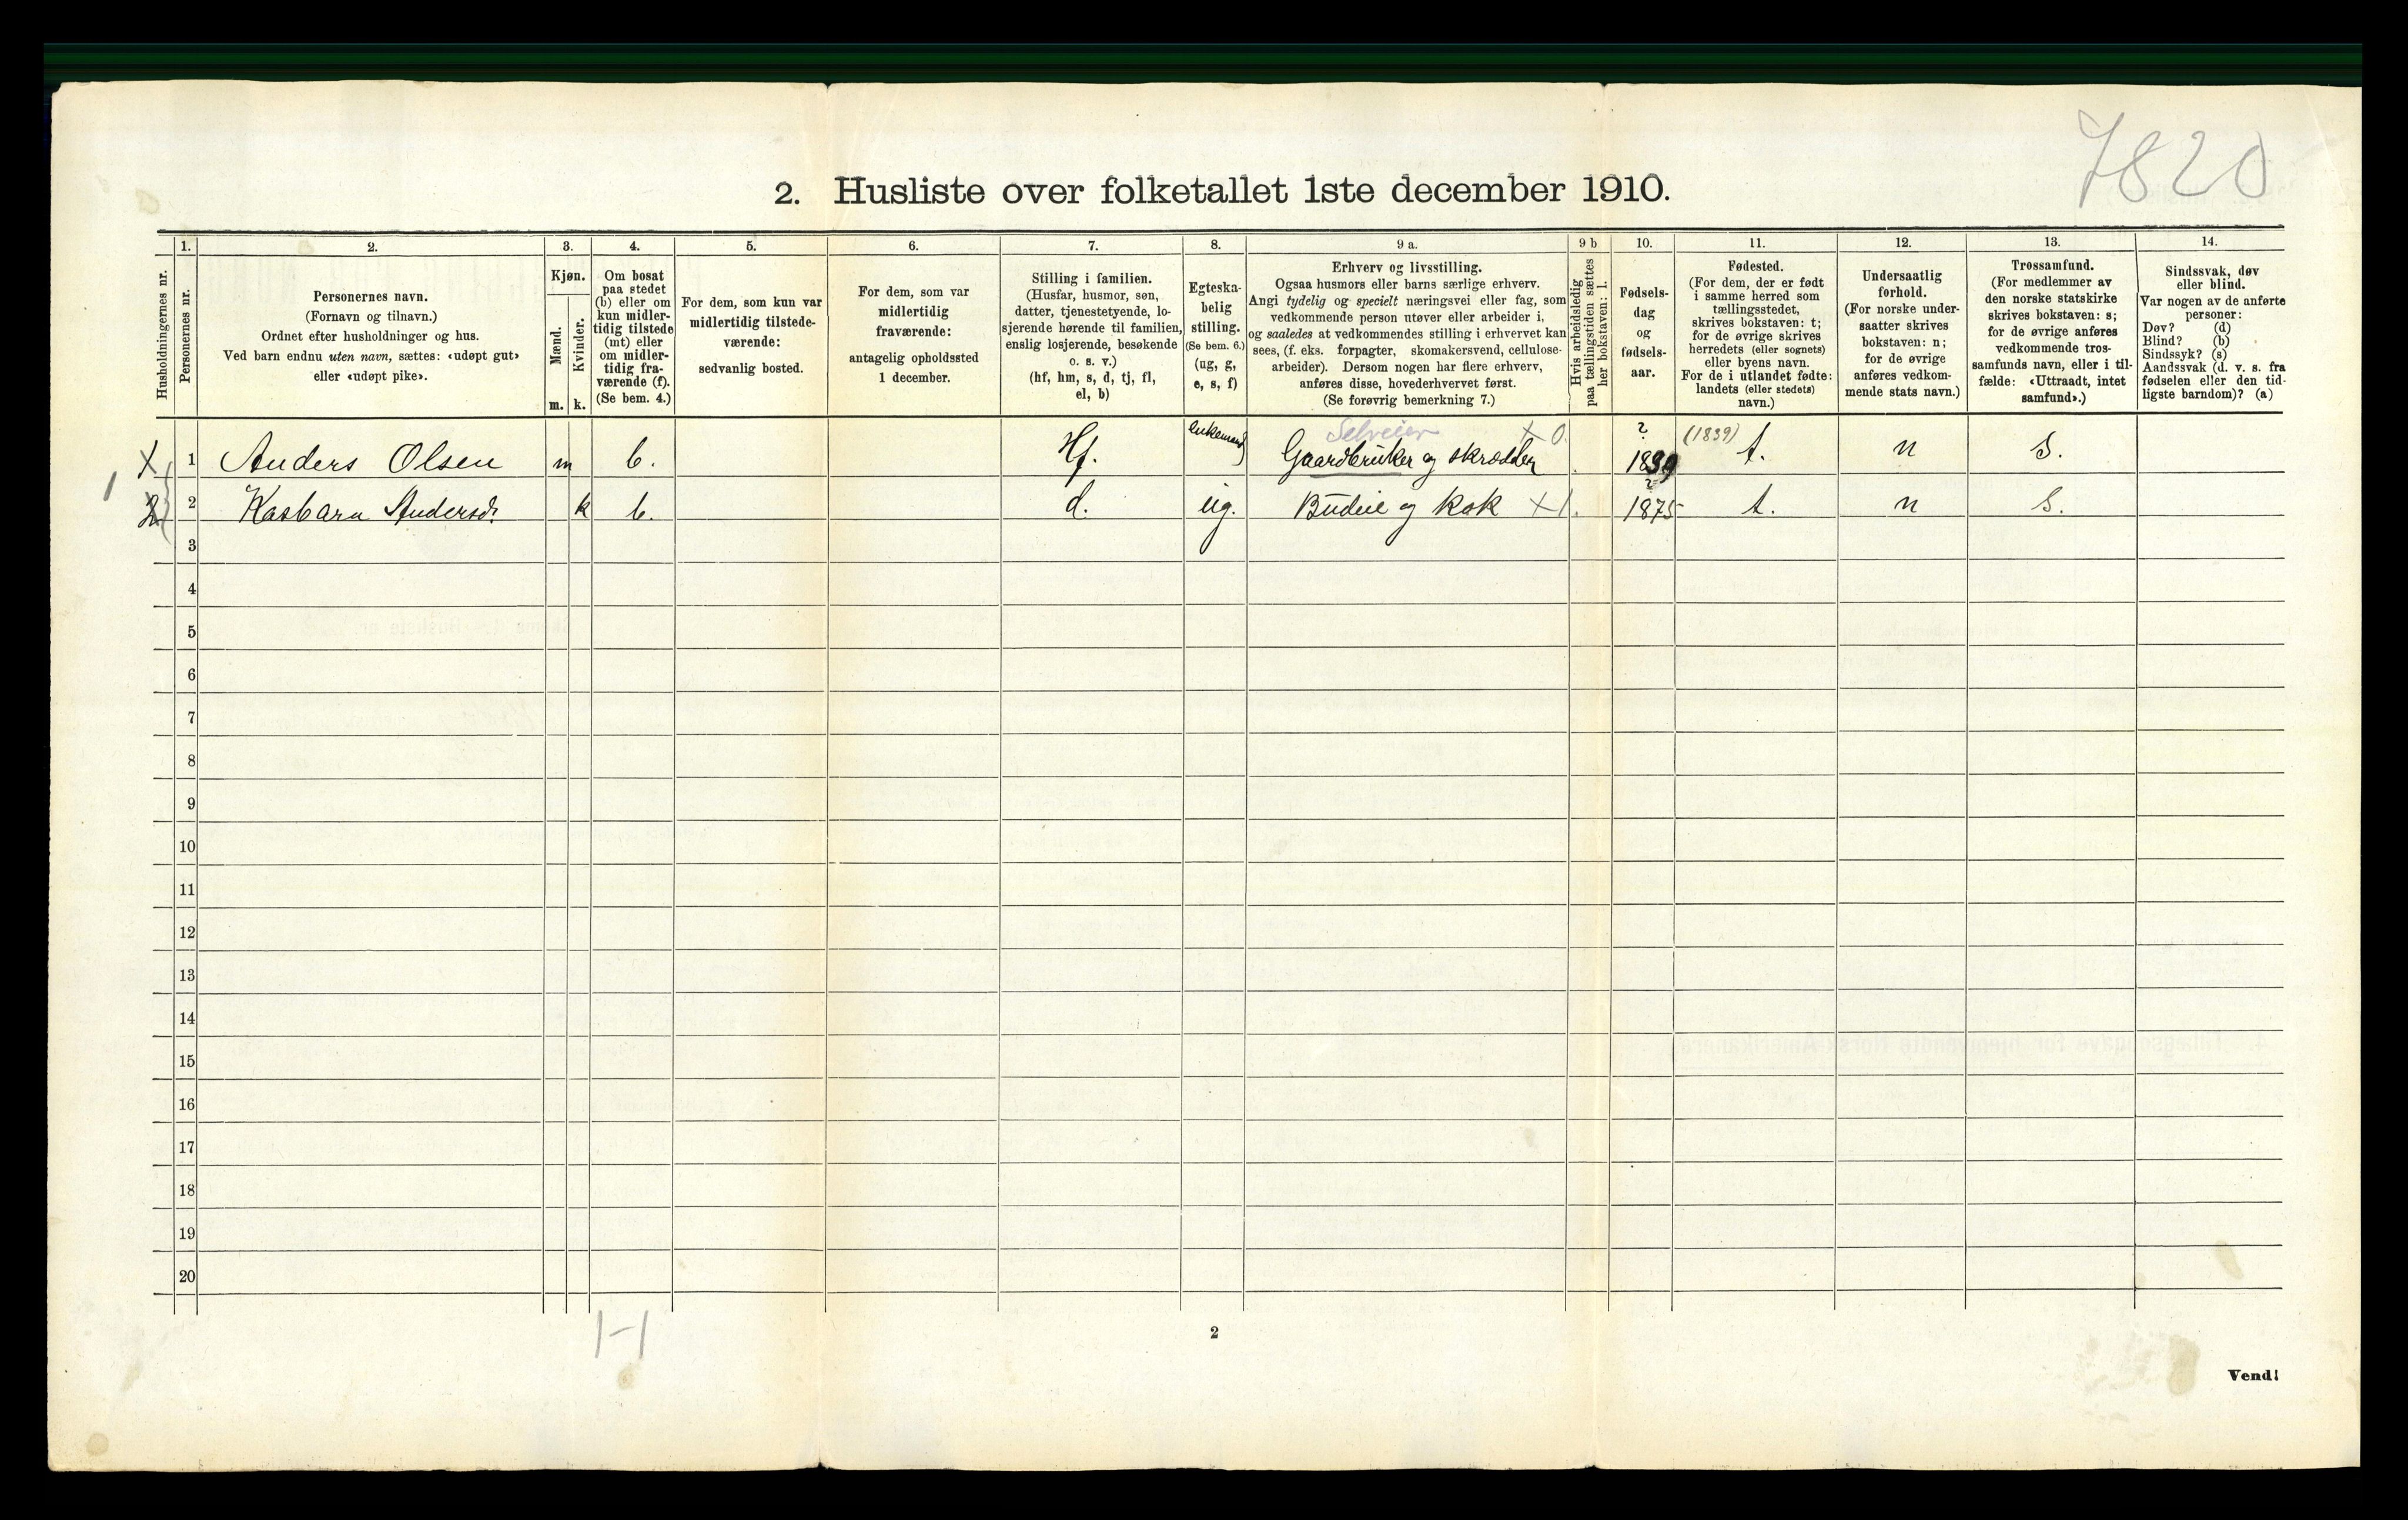 7820
2. Husliste over folketallet 1ste december 1910.
1. 2. 3. 4. 5. 6. 7. 8. 9 a. 9 b 10. 11. 12. 13. 14.
Husholdningernes nr.
Personernes nr.
Personernes navn.
(Fornavn og tilnavn.)
Ordnet efter husholdninger og hus.
Ved barn endnu uten navn, sættes: «udøpt gut»
eller «udøpt pike».
Kjøn.
Mænd.
Kvinder.
m. k.
Om bosat
paa stedet
(b) eller om
kun midler-
tidig tilstede
(mt) eller
om midler-
tidig fra-
værende (f).
(Se bem. 4.)
For dem, som kun var
midlertidig tilstede-
værende:
sedvanlig bosted.
For dem, som var
midlertidig
fraværende:
antagelig opholdssted
1 december.
Stilling i familien.
(Husfar, husmor, søn,
datter, tjenestetyende, lo-
sjerende hørende til familien,
enslig losjerende, besøkende
o. s. v.)
(hf, hm, s, d, tj, fl,
el, b)
Egteska-
belig
stilling.
(Se bem. 6.)
(ug, g,
e, s, f)
Erhverv og livsstilling.
Ogsaa husmors eller barns særlige erhverv.
Angi tydelig og specielt næringsvei eller fag, som
vedkommende person utøver eller arbeider i,
og saaledes at vedkommendes stilling i erhvervet kan
sees, (f. eks. forpagter, skomakersvend, cellulose-
arbeider). Dersom nogen har flere erhverv,
anføres disse, hovederhvervet først.
(Se forøvrig bemerkning 7.)
Hvis arbeidsledig
paa tællingstiden sættes
her bokstaven: l.
Fødsels-
dag
og
fødsels-
aar.
Fødested.
(For dem, der er født
i samme herred som
tællingsstedet,
skrives bokstaven: t;
for de øvrige skrives
herredets (eller sognets)
eller byens navn.
For de i utlandet fødte:
landets (eller stedets)
navn.)
Undersaatlig
forhold.
(For norske under-
saatter skrives
bokstaven: n;
for de øvrige
anføres vedkom-
mende stats navn.)
Trossamfund.
(For medlemmer av
den norske statskirke
skrives bokstaven: s;
for de øvrige anføres
vedkommende tros-
samfunds navn, eller i til-
fælde: «Uttraadt, intet
samfund».)
Sindssvak, døv
eller blind.
Var nogen av de anførte
personer:
Døv? (d)
Blind? (b)
Sindssyk? (s)
Aandssvak (d. v. s. fra
fødselen eller den tid-
ligste barndom)? (a)
Selveier X 0. ? (1839)
1 Anders Olsen m b. Hf. enkemand Gaardbruker og skrædder 1839 t. n s.
1
2 Kasbara Andersd. k b. d. ug. Budeie og kok X 1. ? 1875 t. n s.
3
4
5
6
7
8
9
10
11
12
13
14
15
16
17
18
19
20
1-1
2
Vend!